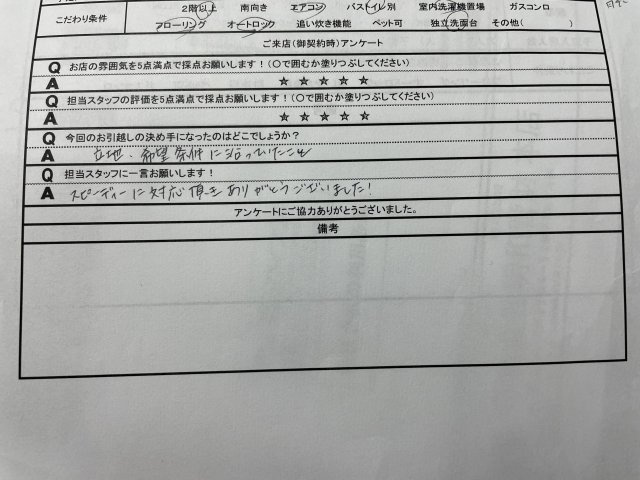 こだわり条件 2階以上 南向き エアコン バストイレ別 室内洗濯機置場 ガスコンロ
フローリング オートロック 追い炊き機能 ペット可 独立洗面台 その他( )
ご来店(御契約時)アンケート
Q お店の雰囲気を5点満点で採点お願いします!(〇で囲むか塗りつぶしてください)
A ☆ ☆ ☆ ☆ ☆
Q 担当スタッフの評価を5点満点で採点お願いします!(〇で囲むか塗りつぶしてください)
A ☆ ☆ ☆ ☆ ☆
Q 今回のお引越しの決め手になったのはどこでしょうか?
A 立地、希望条件に沿っていたこと
Q 担当スタッフに一言お願いします!
A スピーディーに対応頂きありがとうございました!
アンケートにご協力ありがとうございました。
備考